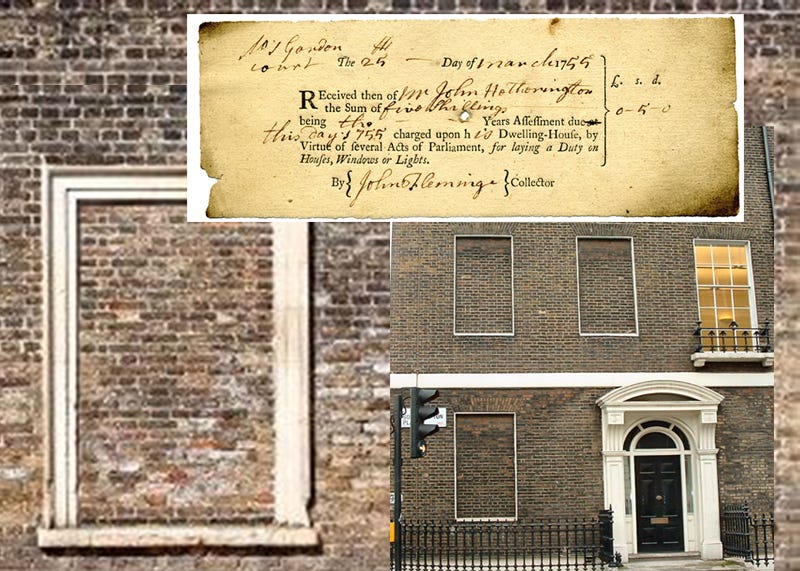 Gordon th
court The 25 Day of march 1755
£. s. d.
REceived then of Mr John Hetherington
the Sum of five Shillings 0-5-0
being the Years Aſſeſſment due at
this day 1755 charged upon his Dwelling-Houſe, by
Virtue of ſeveral Acts of Parliament, for laying a Duty on
Houſes, Windows or Lights.
By { John Fleminge } Collector